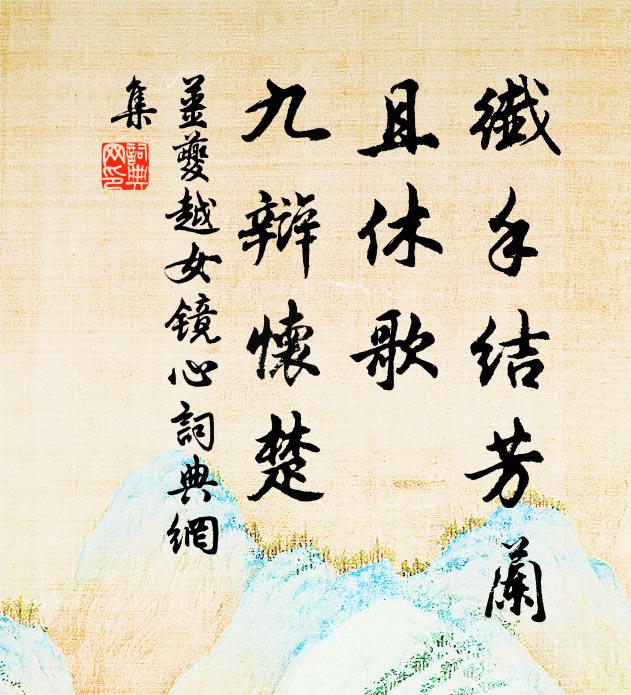 纖手結芳蘭
且休歌
九辯懷楚
姜夔越女鏡心詞典網
集
詞典網印